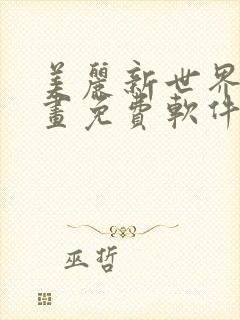 美麗新世界
畫免費軟件
巫哲